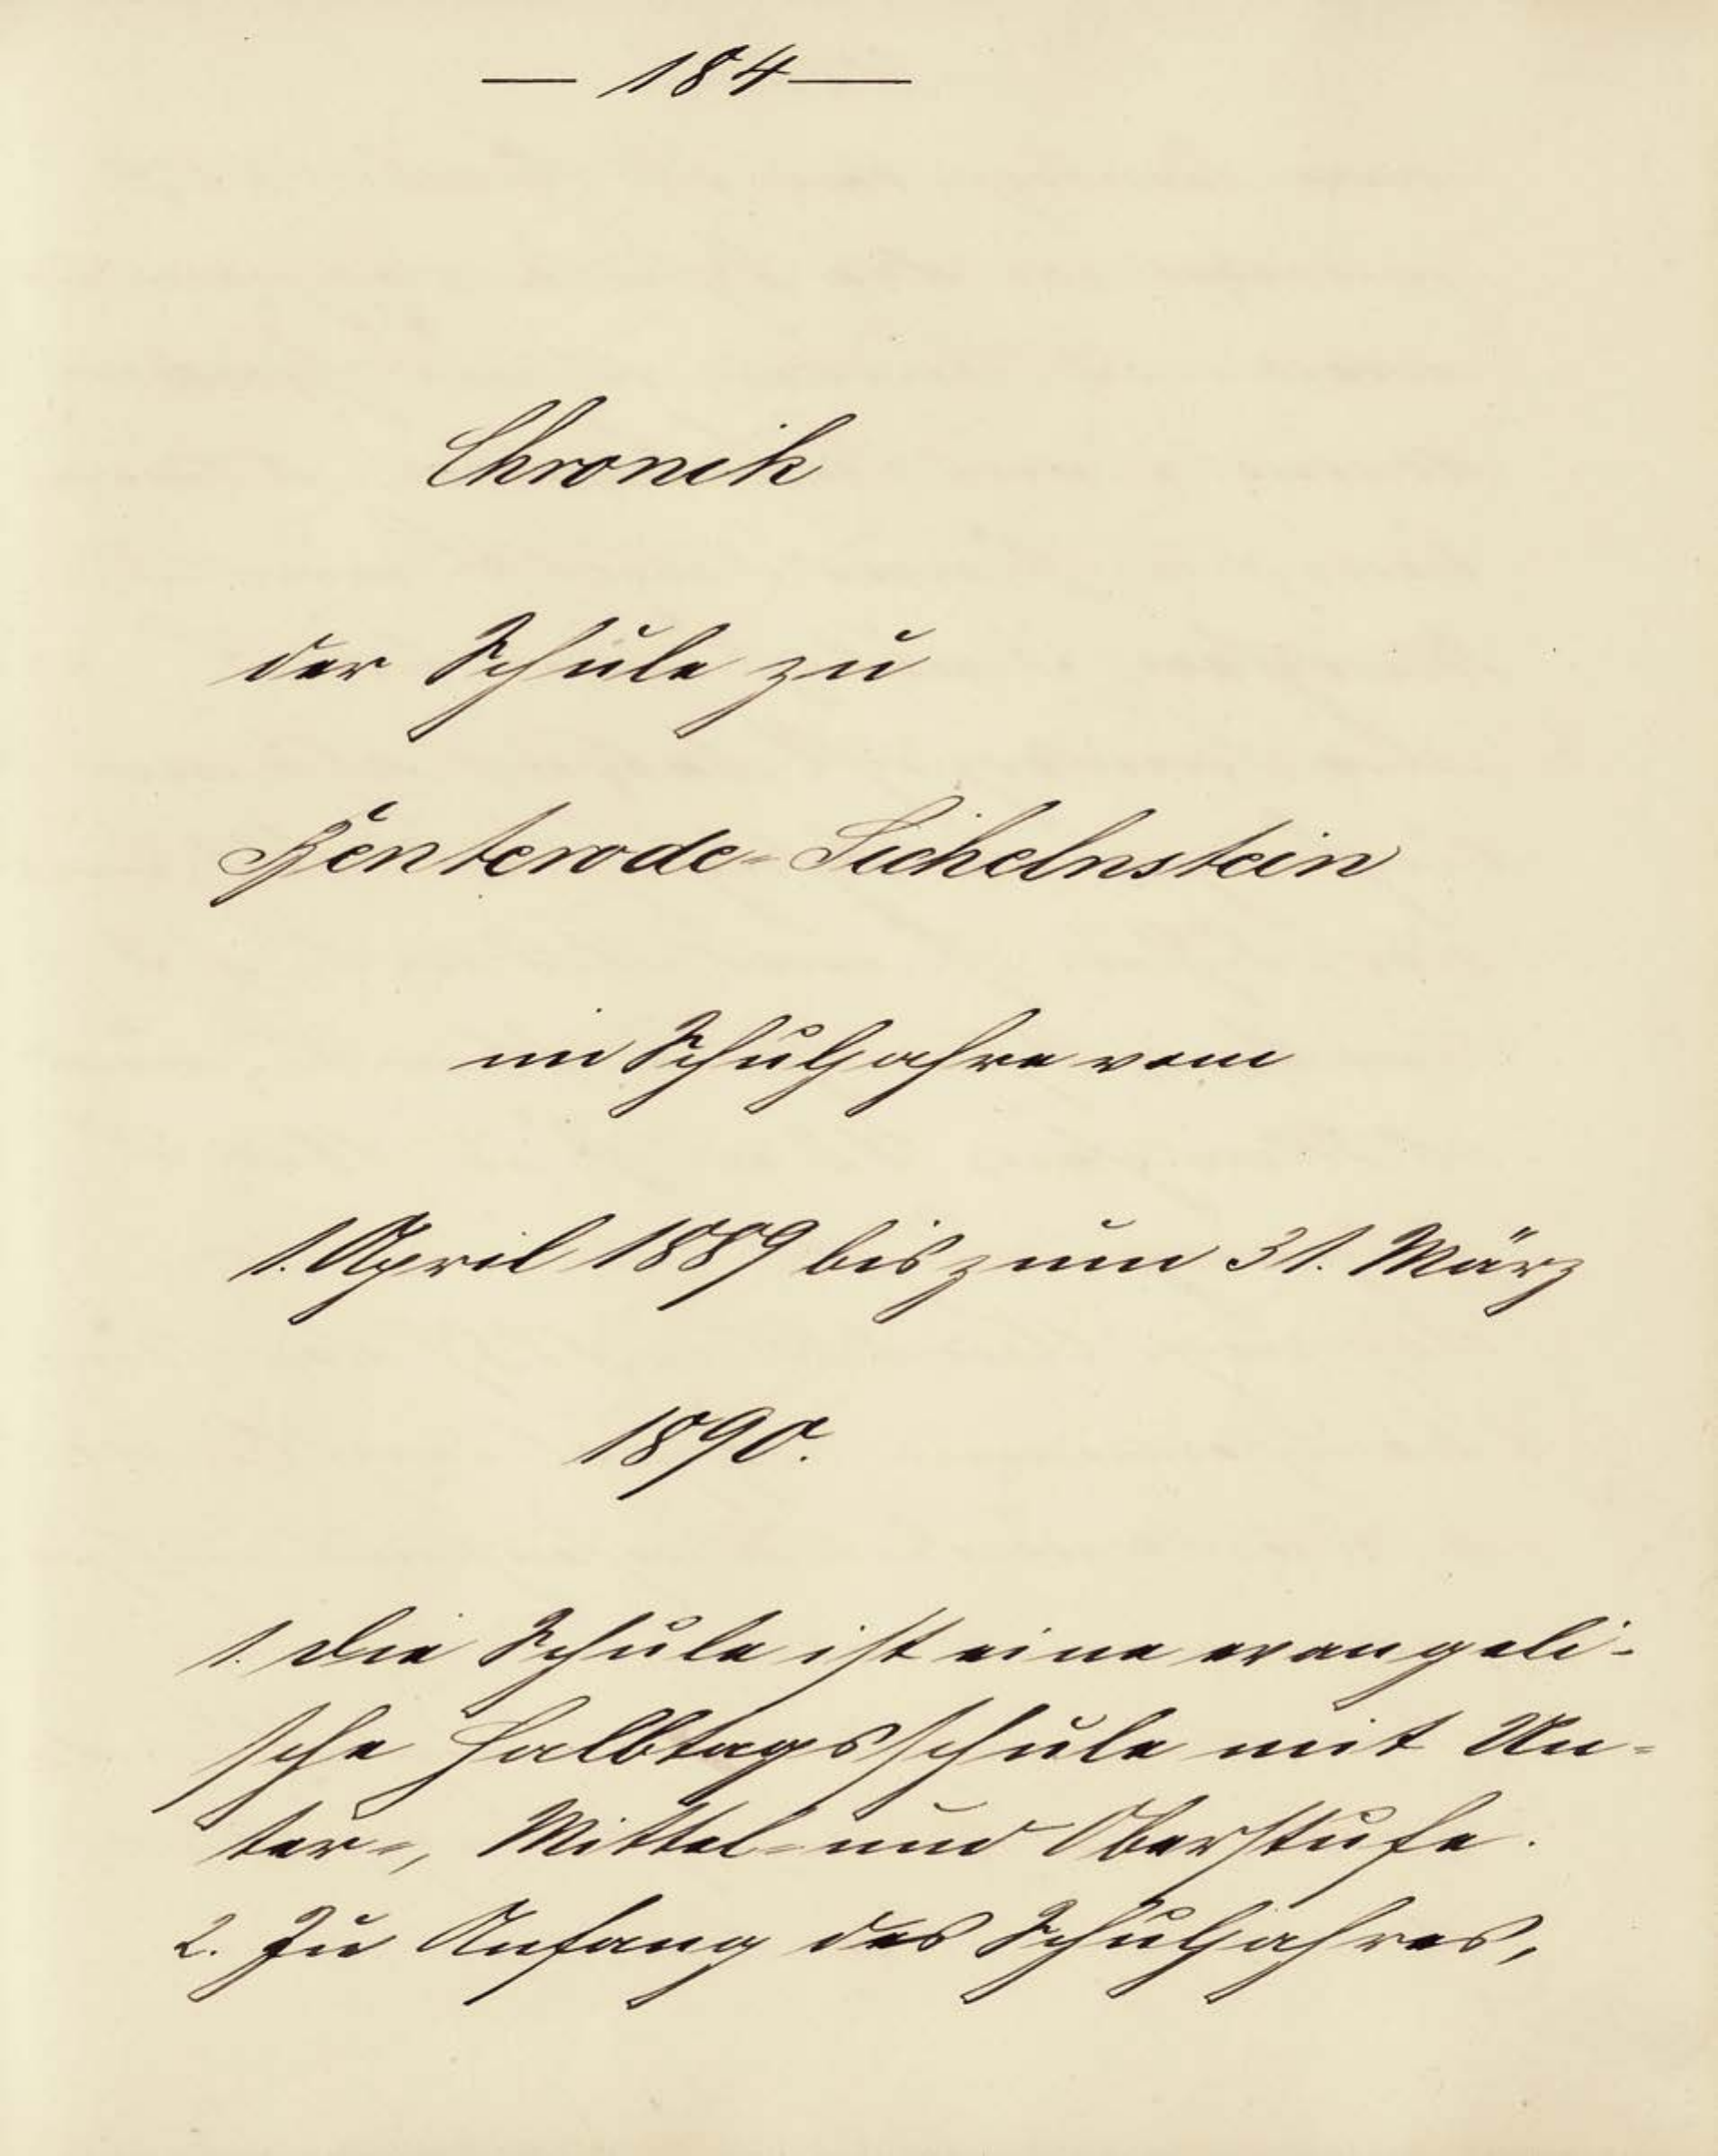 — 184 —
Chronik
der Schule zu
Benterode-Sichelnstein
im Schuljahre vom
1. April 1889 bis zum 31. März
1890.
1. Die Schule ist eine evangeli-
sche Halbtagsschule mit Un-
ter-, Mittel- und Oberstufe.
2. Zu Anfang des Schuljahres,